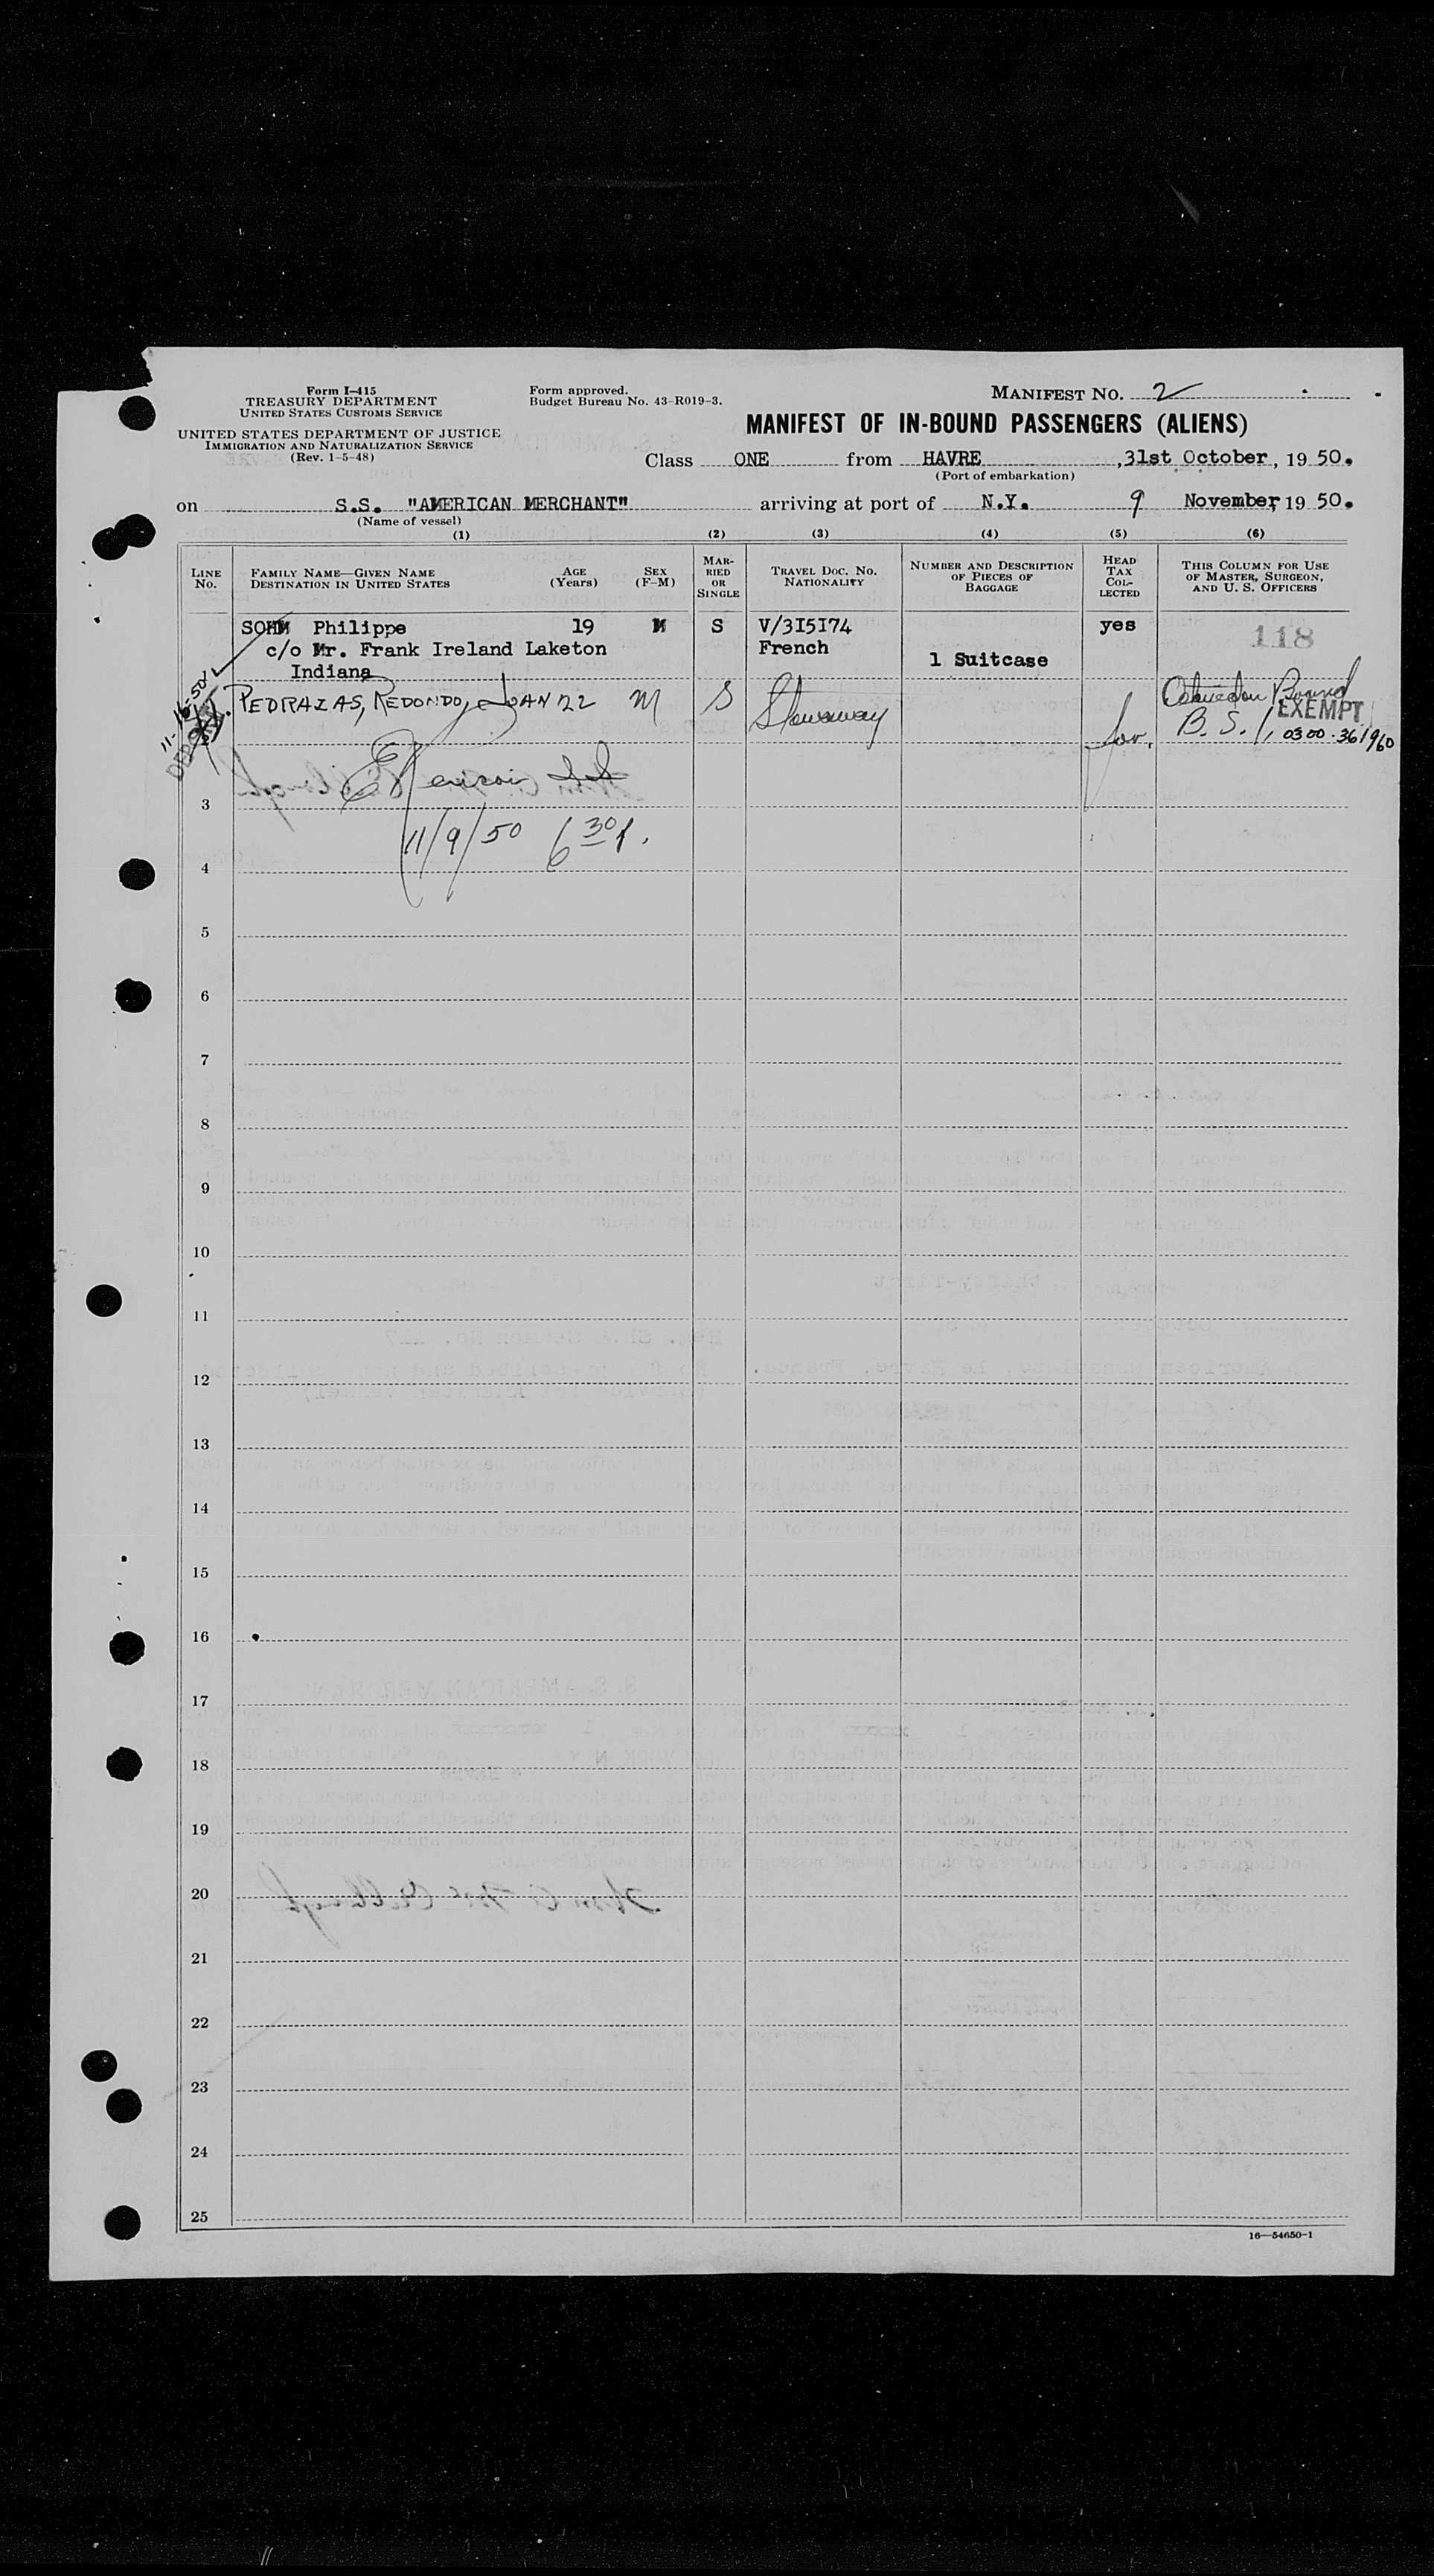 Form I-415
TREASURY DEPARTMENT
UNITED STATES CUSTOMS SERVICE
UNITED STATES DEPARTMENT OF JUSTICE
IMMIGRATION AND NATURALIZATION SERVICE
(Rev. 1-5-48)
Form approved.
Budget Bureau No. 43-R019-3.
MANIFEST NO. 2
MANIFEST OF IN-BOUND PASSENGERS (ALIENS)
Class ONE from HAVRE, 31st October, 1950.
(Port of embarkation)
on S.S. "AMERICAN MERCHANT" arriving at port of N.Y. 9 November, 1950.
(Name of vessel)
(1) (2) (3) (4) (5) (6)
LINE No.
FAMILY NAME—GIVEN NAME
DESTINATION IN UNITED STATES
AGE (Years)
SEX (F-M)
MARRIED OR SINGLE
TRAVEL DOC. NO.
NATIONALITY
NUMBER AND DESCRIPTION OF PIECES OF BAGGAGE
HEAD TAX COLLECTED
THIS COLUMN FOR USE OF MASTER, SURGEON, AND U. S. OFFICERS
SOHM Philippe 19 M S V/3I5I74 yes 118
c/o Mr. Frank Ireland Laketon French
Indiana 1 Suitcase
11-16-50
PEDRAZAS, REDONDO, JUAN 22 M S Stowaway
EXEMPT
B. S. I, 0300-36/960
3
11/9/50 6 30
4
5
6
7
8
9
10
11
12
13
14
15
16
17
18
19
20
21
22
23
24
25
16—54650-1